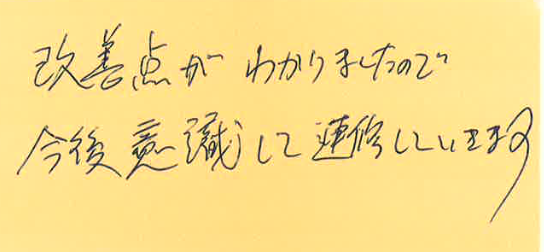 改善点がわかりましたので
今後意識して連修していきます